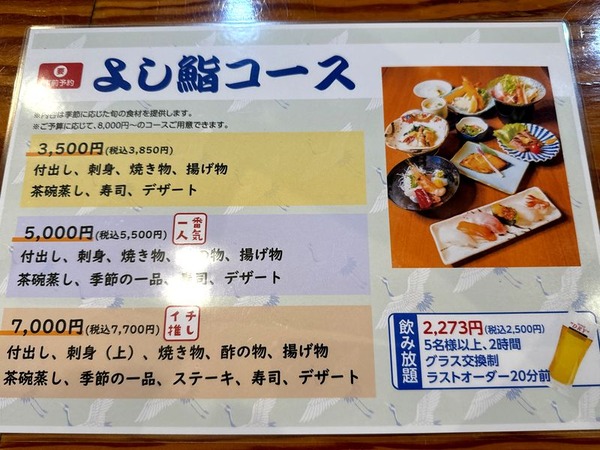 要
事前予約
よし鮨コース
※内容は季節に応じた旬の食材を提供します。
※ご予算に応じて、8,000円〜のコースご用意できます。
3,500円(税込3,850円)
付出し、刺身、焼き物、揚げ物
茶碗蒸し、寿司、デザート
5,000円(税込5,500円)
一番人気
付出し、刺身、焼き物、の物、揚げ物
茶碗蒸し、季節の一品、寿司、デザート
7,000円(税込7,700円)
イチ推し
付出し、刺身（上）、焼き物、酢の物、揚げ物
茶碗蒸し、季節の一品、ステーキ、寿司、デザート
飲み放題
2,273円(税込2,500円)
5名様以上、2時間
グラス交換制
ラストオーダー20分前